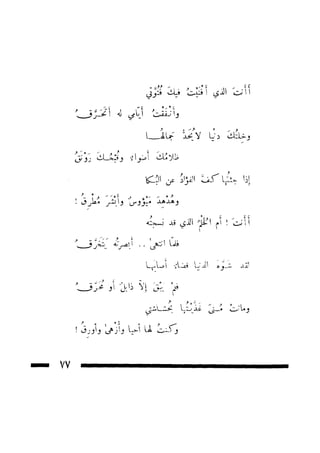 أأنتَ الذي أفْنَيْتُ فيكَ فُتُوَّتي
وأنْفَقْتُ أيّامي له أتَحَرَّقُ
وخِلتُكَ دنْيا لا يُحَدُّ جمالُهَا
ظلامُكَ أضواءٌ وقُبْحُكَ رَوْنَقُ
إذا جئتُها كفَّ الفؤادُ عن البُكا
وهُدْهِدَ مَيْؤوسٌ وأبْشَرَ مُطْرِقُ !
أأنتَ ! أم الحُلْمُ الذي قد نسجتُه
فلمّا انتهى .. أبصرتُه يَتَخَرَّقُ
لقد شوّهَ الدنيا قضاءٌ أصابها
فلم يبْقَ إلاّ ذابلٌ أو مُحَرَّقُ
وماتتْ مُنىً غذَّيْتُها بحُشاشتي
وكنتُ لها أحيا وأزهى وأورقُ !
٧٧